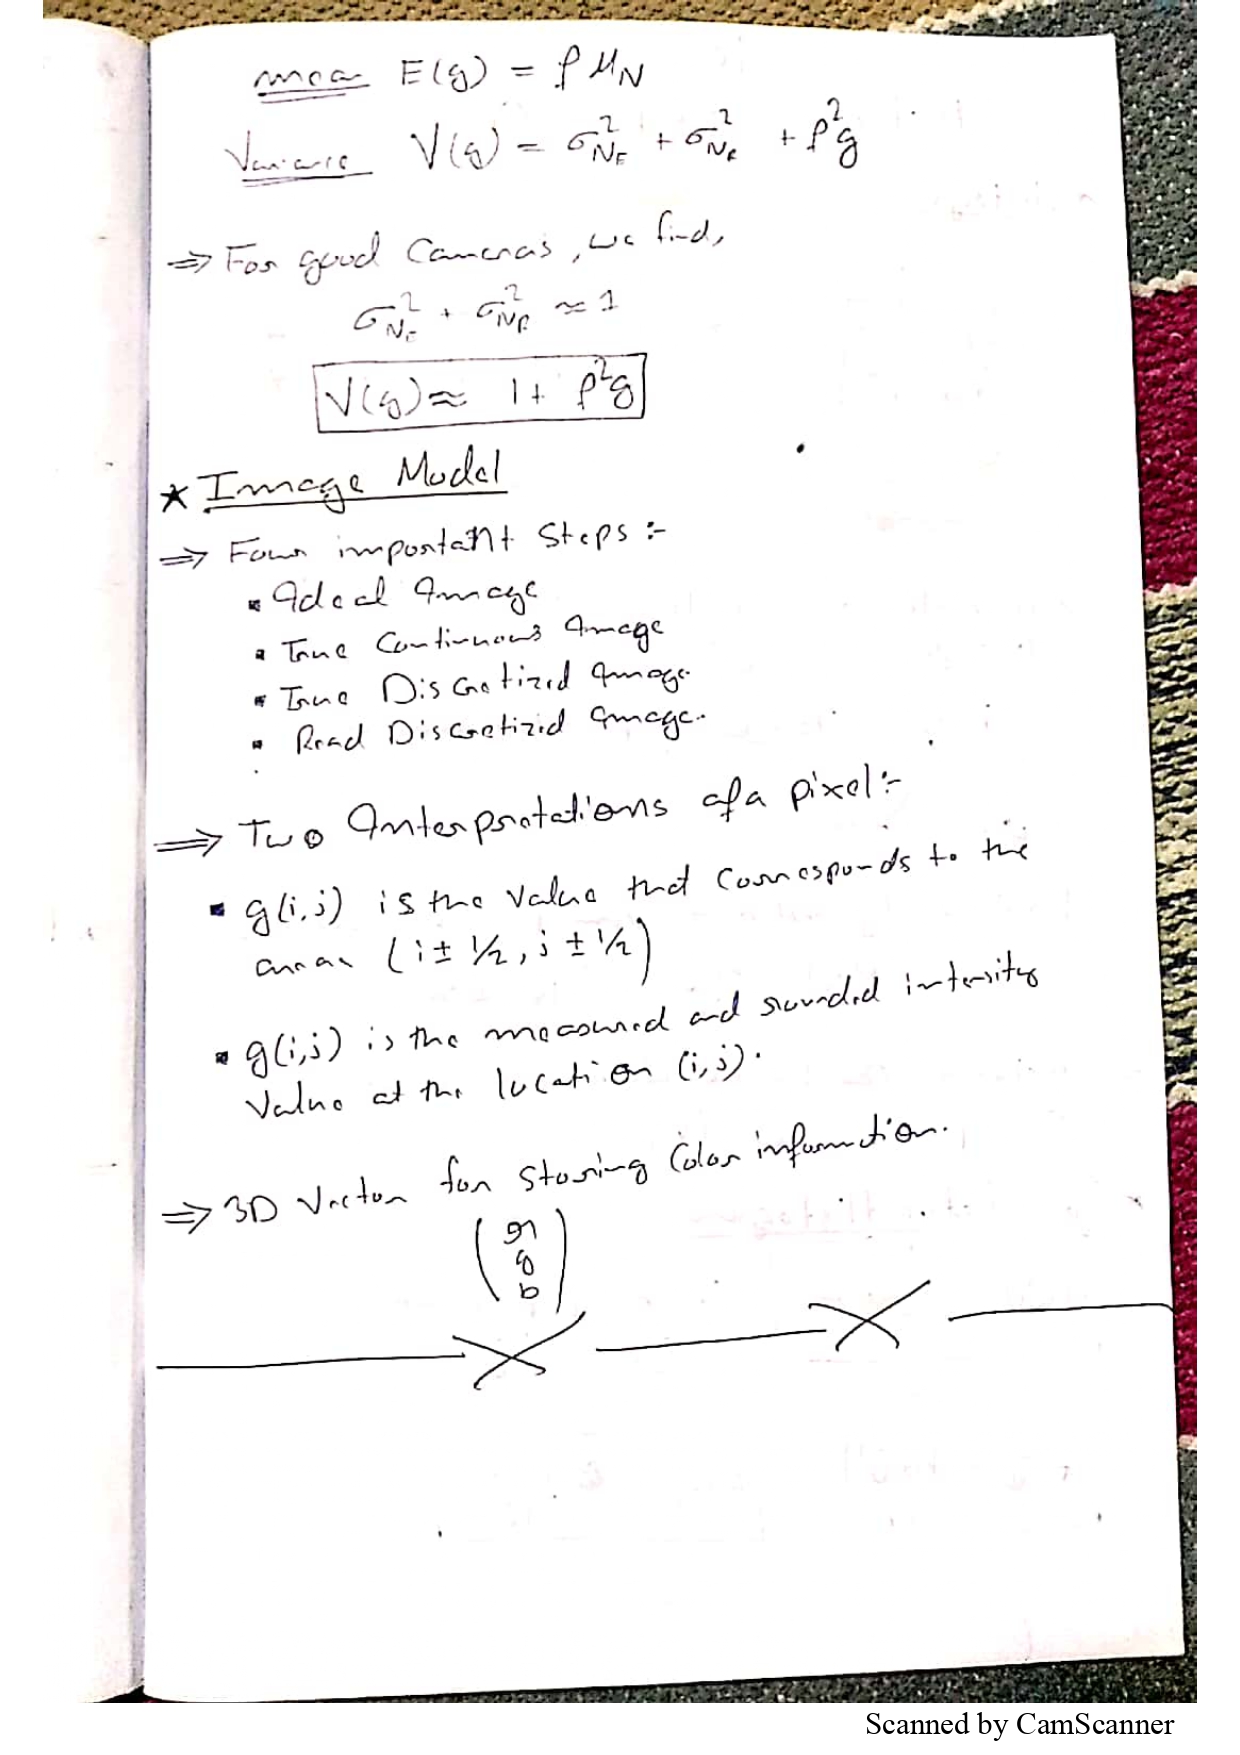 mean E(g) = ρ μ_N
Variance V(g) = σ²_{N_E} + σ²_{N_R} + ρ²g
⇒ For good Cameras, we find,
σ²_{N_E} + σ²_{N_R} ≈ 1
V(g) ≈ 1 + ρ²g
★ Image Model
⇒ Four important Steps :-
▪ Ideal Image
▪ True Continuous Image
▪ True Discretized Image.
▪ Read Discretized Image.
⇒ Two Interpretations of a pixel :-
▪ g(i,j) is the value that corresponds to the
area (i ± 1/2, j ± 1/2)
▪ g(i,j) is the measured and rounded intensity
Value at the location (i,j).
⇒ 3D Vector for storing Color information.
(r
g
b)
Scanned by CamScanner